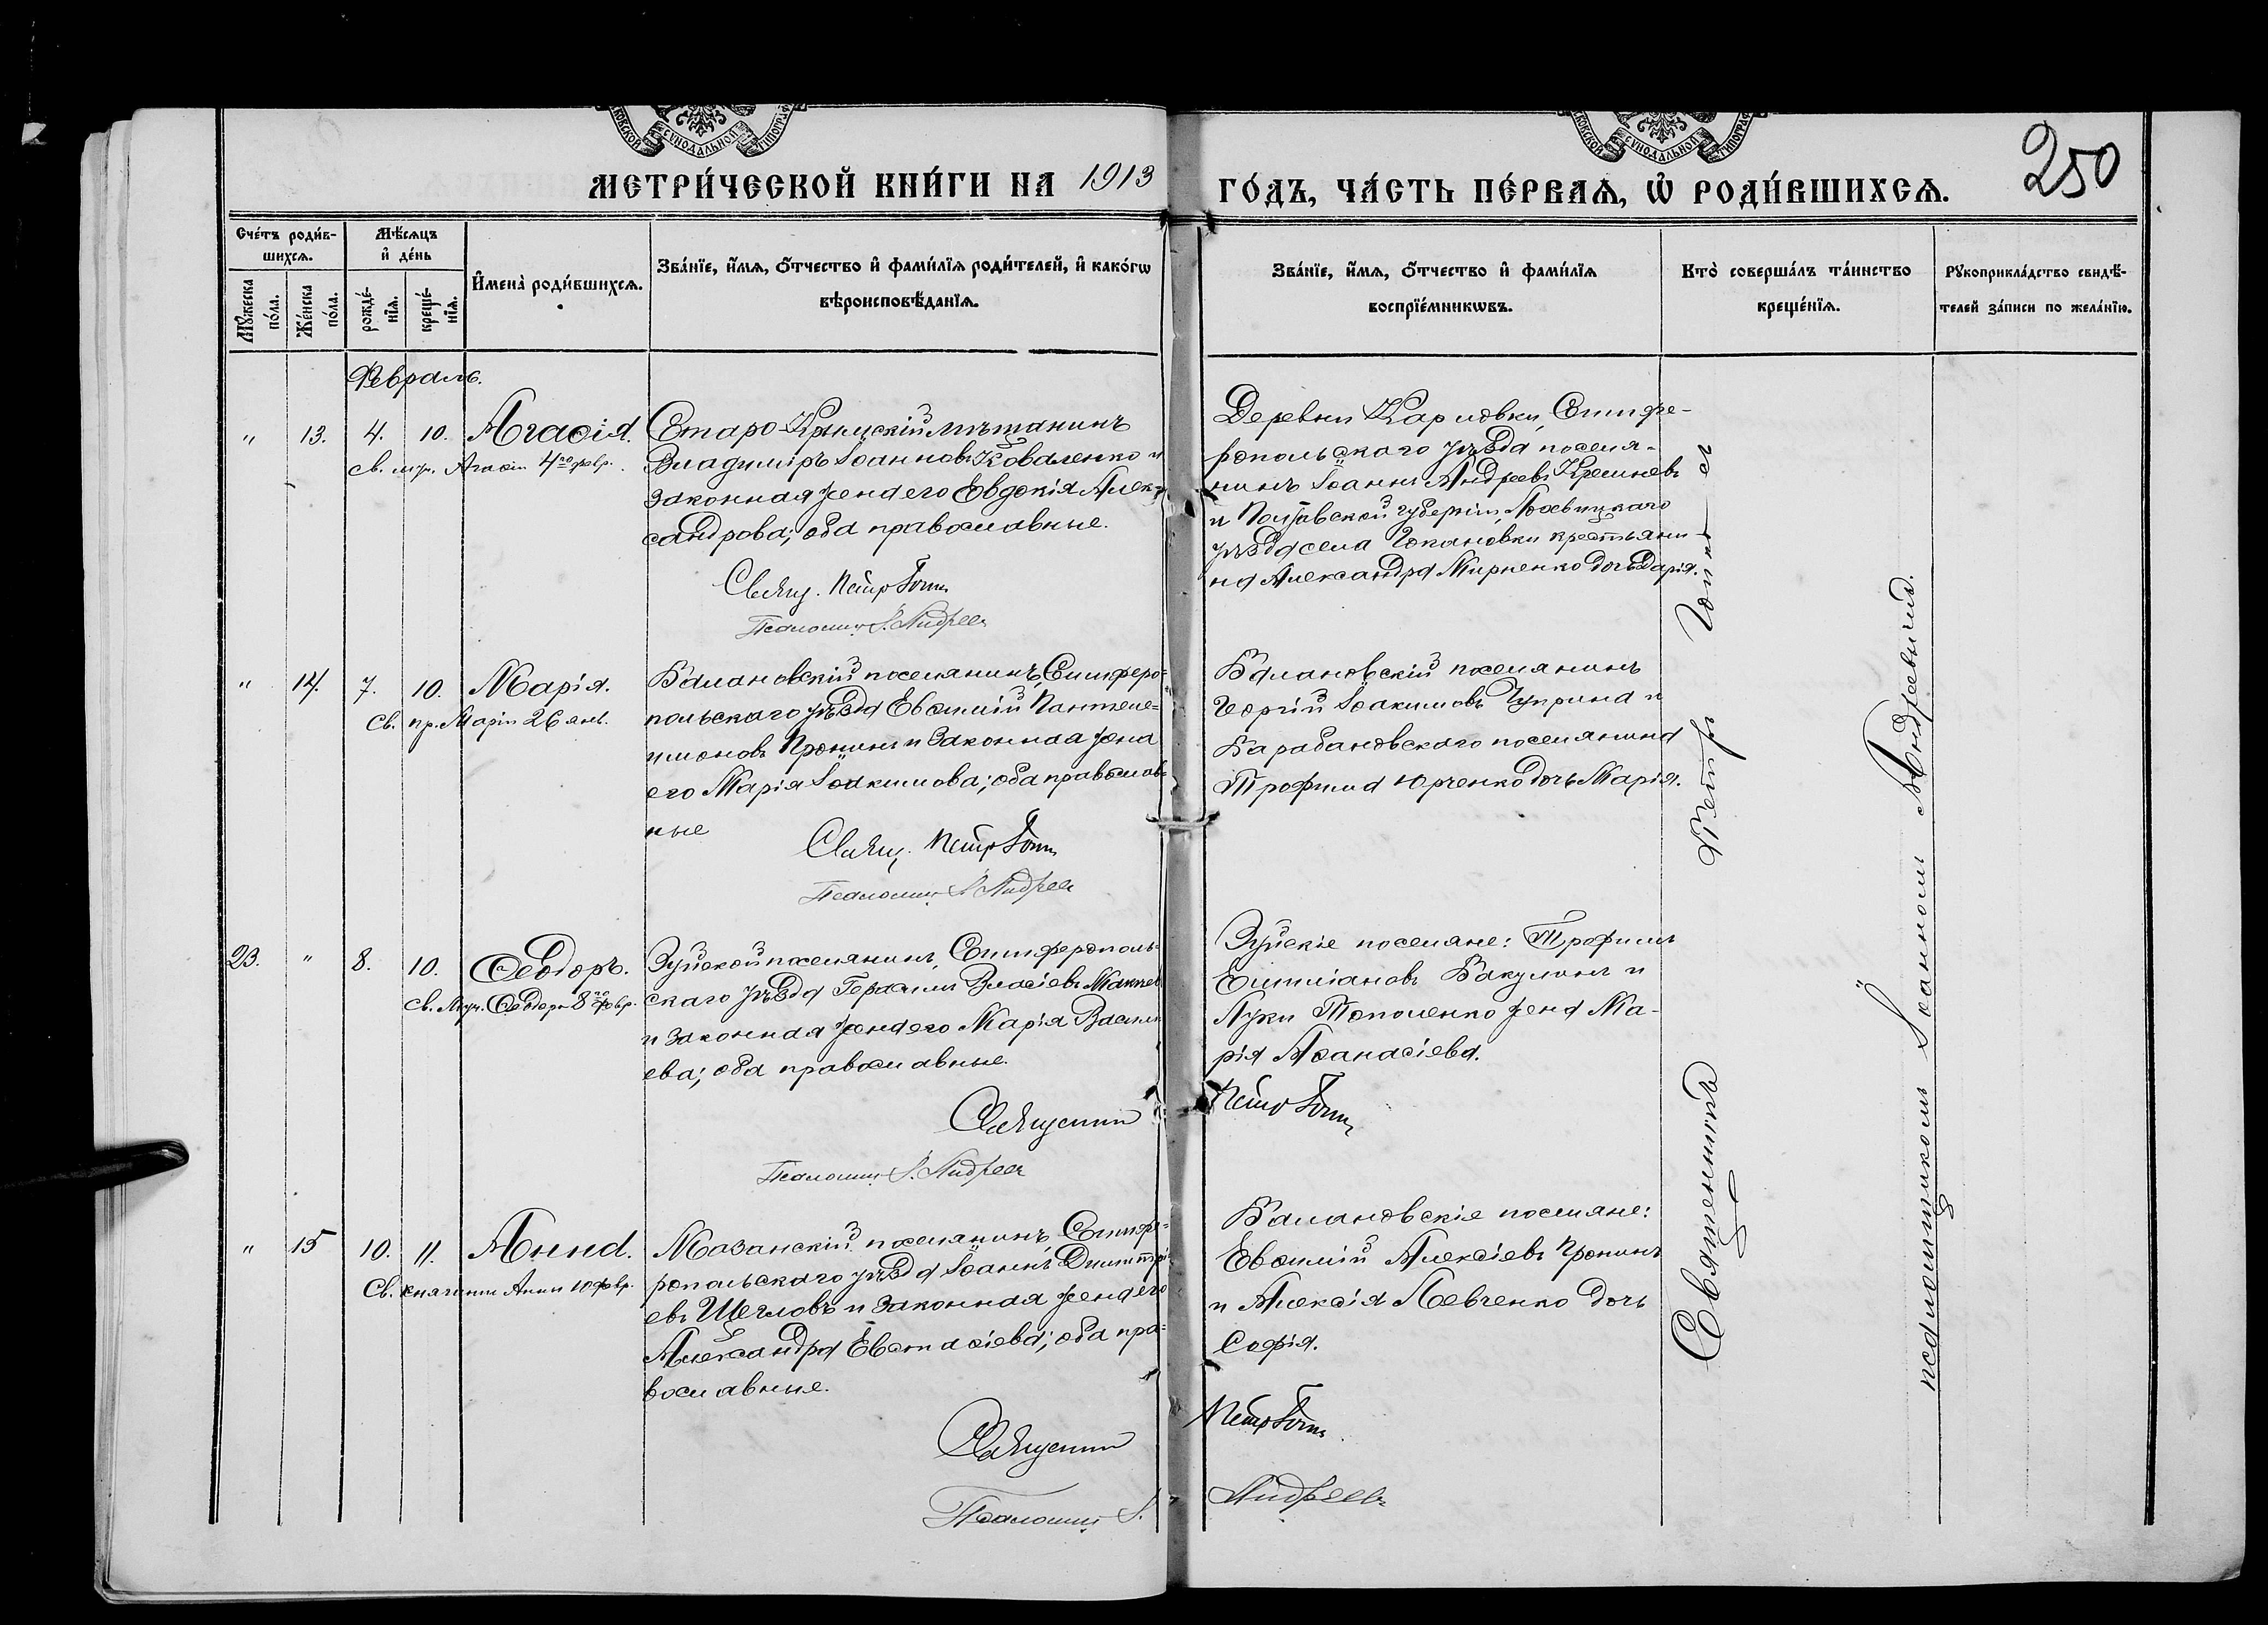 МЕТРИ́ЧЕСКОЙ КНИ́ГИ НА 1913
ГО́ДЪ, ЧА́СТЬ ПЕ́РВАѦ, Ѡ҆ РОДИ́ВШИХСѦ.
250
Сче́тъ роди́в-
шихсѧ.
Мꙋ́жеска по́ла.
Же́нска по́ла.
Мѣ́сѧцъ
и҆ де́нь
рожде́-
нїѧ.
креще́-
нїѧ.
И҆мена̀ роди́вшихсѧ.
Зва́нїе, и҆́мѧ, ѻ҆́тчество и҆ фами́лїѧ роди́телей, и҆ како́гѡ
вѣроисповѣ́данїѧ.
Зва́нїе, и҆́мѧ, ѻ҆́тчество и҆ фами́лїѧ
воспрїе́мникѡвъ.
Кто̀ соверша́лъ та́инство
креще́нїѧ.
Рꙋкоприкла́дство свидѣ́-
телей за́писи по жела́нїю.
Февраль.
" 13. 4. 10. Агаѳія.
св. муч. Агаѳіи 4го февр.
Старо-Крымскій мѣщанинъ
Владиміръ Іоанновъ Коваленко и
законная жена его Евдокія Алек-
сандрова; оба православные.
Свящ. Петр
Псаломщ. І. Андреев
Деревни Симфе-
ропольскаго уѣзда поселя-
нинъ Іоаннъ Андреевъ
и Полтавской губерніи, Лохвицкаго
уѣзда села крестьяни-
на Александра дочь Дарія.
" 14. 7. 10. Марія.
св. пр. Маріи 26 янв.
Балановскій поселянинъ, Симферо-
польскаго уѣзда Евѳимій Пантеле-
имоновъ Пронинъ и законная жена
его Марія Іоакимова; оба православ-
ные
Свящ. Петр
Псаломщ. І. Андреев
Балановскій поселянинъ
Георгій Іоакимовъ Чуприна и
Барабановскаго поселянина
Трофима Юрченко дочь Марія.
23. " 8. 10. Ѳеодоръ.
св. муч. Ѳеодора 8го февр.
Зуйской поселянинъ, Симферополь-
скаго уѣзда Герасимъ Власіевъ
и законная жена его Марія Василь
ева; оба православные.
Священник Петр
Псаломщ. І. Андреев
Зуйскіе поселяне: Трофимъ
Емиліановъ Бакулинъ и
Луки Тополенко жена Ма-
рія Аѳанасіева.
" 15 10. 11. Анна.
Св. княгини Анны 10 февр.
Мазанскій поселянинъ, Симфе-
ропольскаго уѣзда Іоаннъ Димитрі
евъ Щегловъ и законная жена его
Александра Евстаѳіева; оба пра-
вославные.
Священник Петр
Псаломщ І. Андреевъ
Балановскіе поселяне:
Евѳимій Алексіевъ Пронинъ
и Алексія Левченко дочь
Софія.
Священникъ Петръ
псаломщикомъ Іоанномъ Андреевымъ.